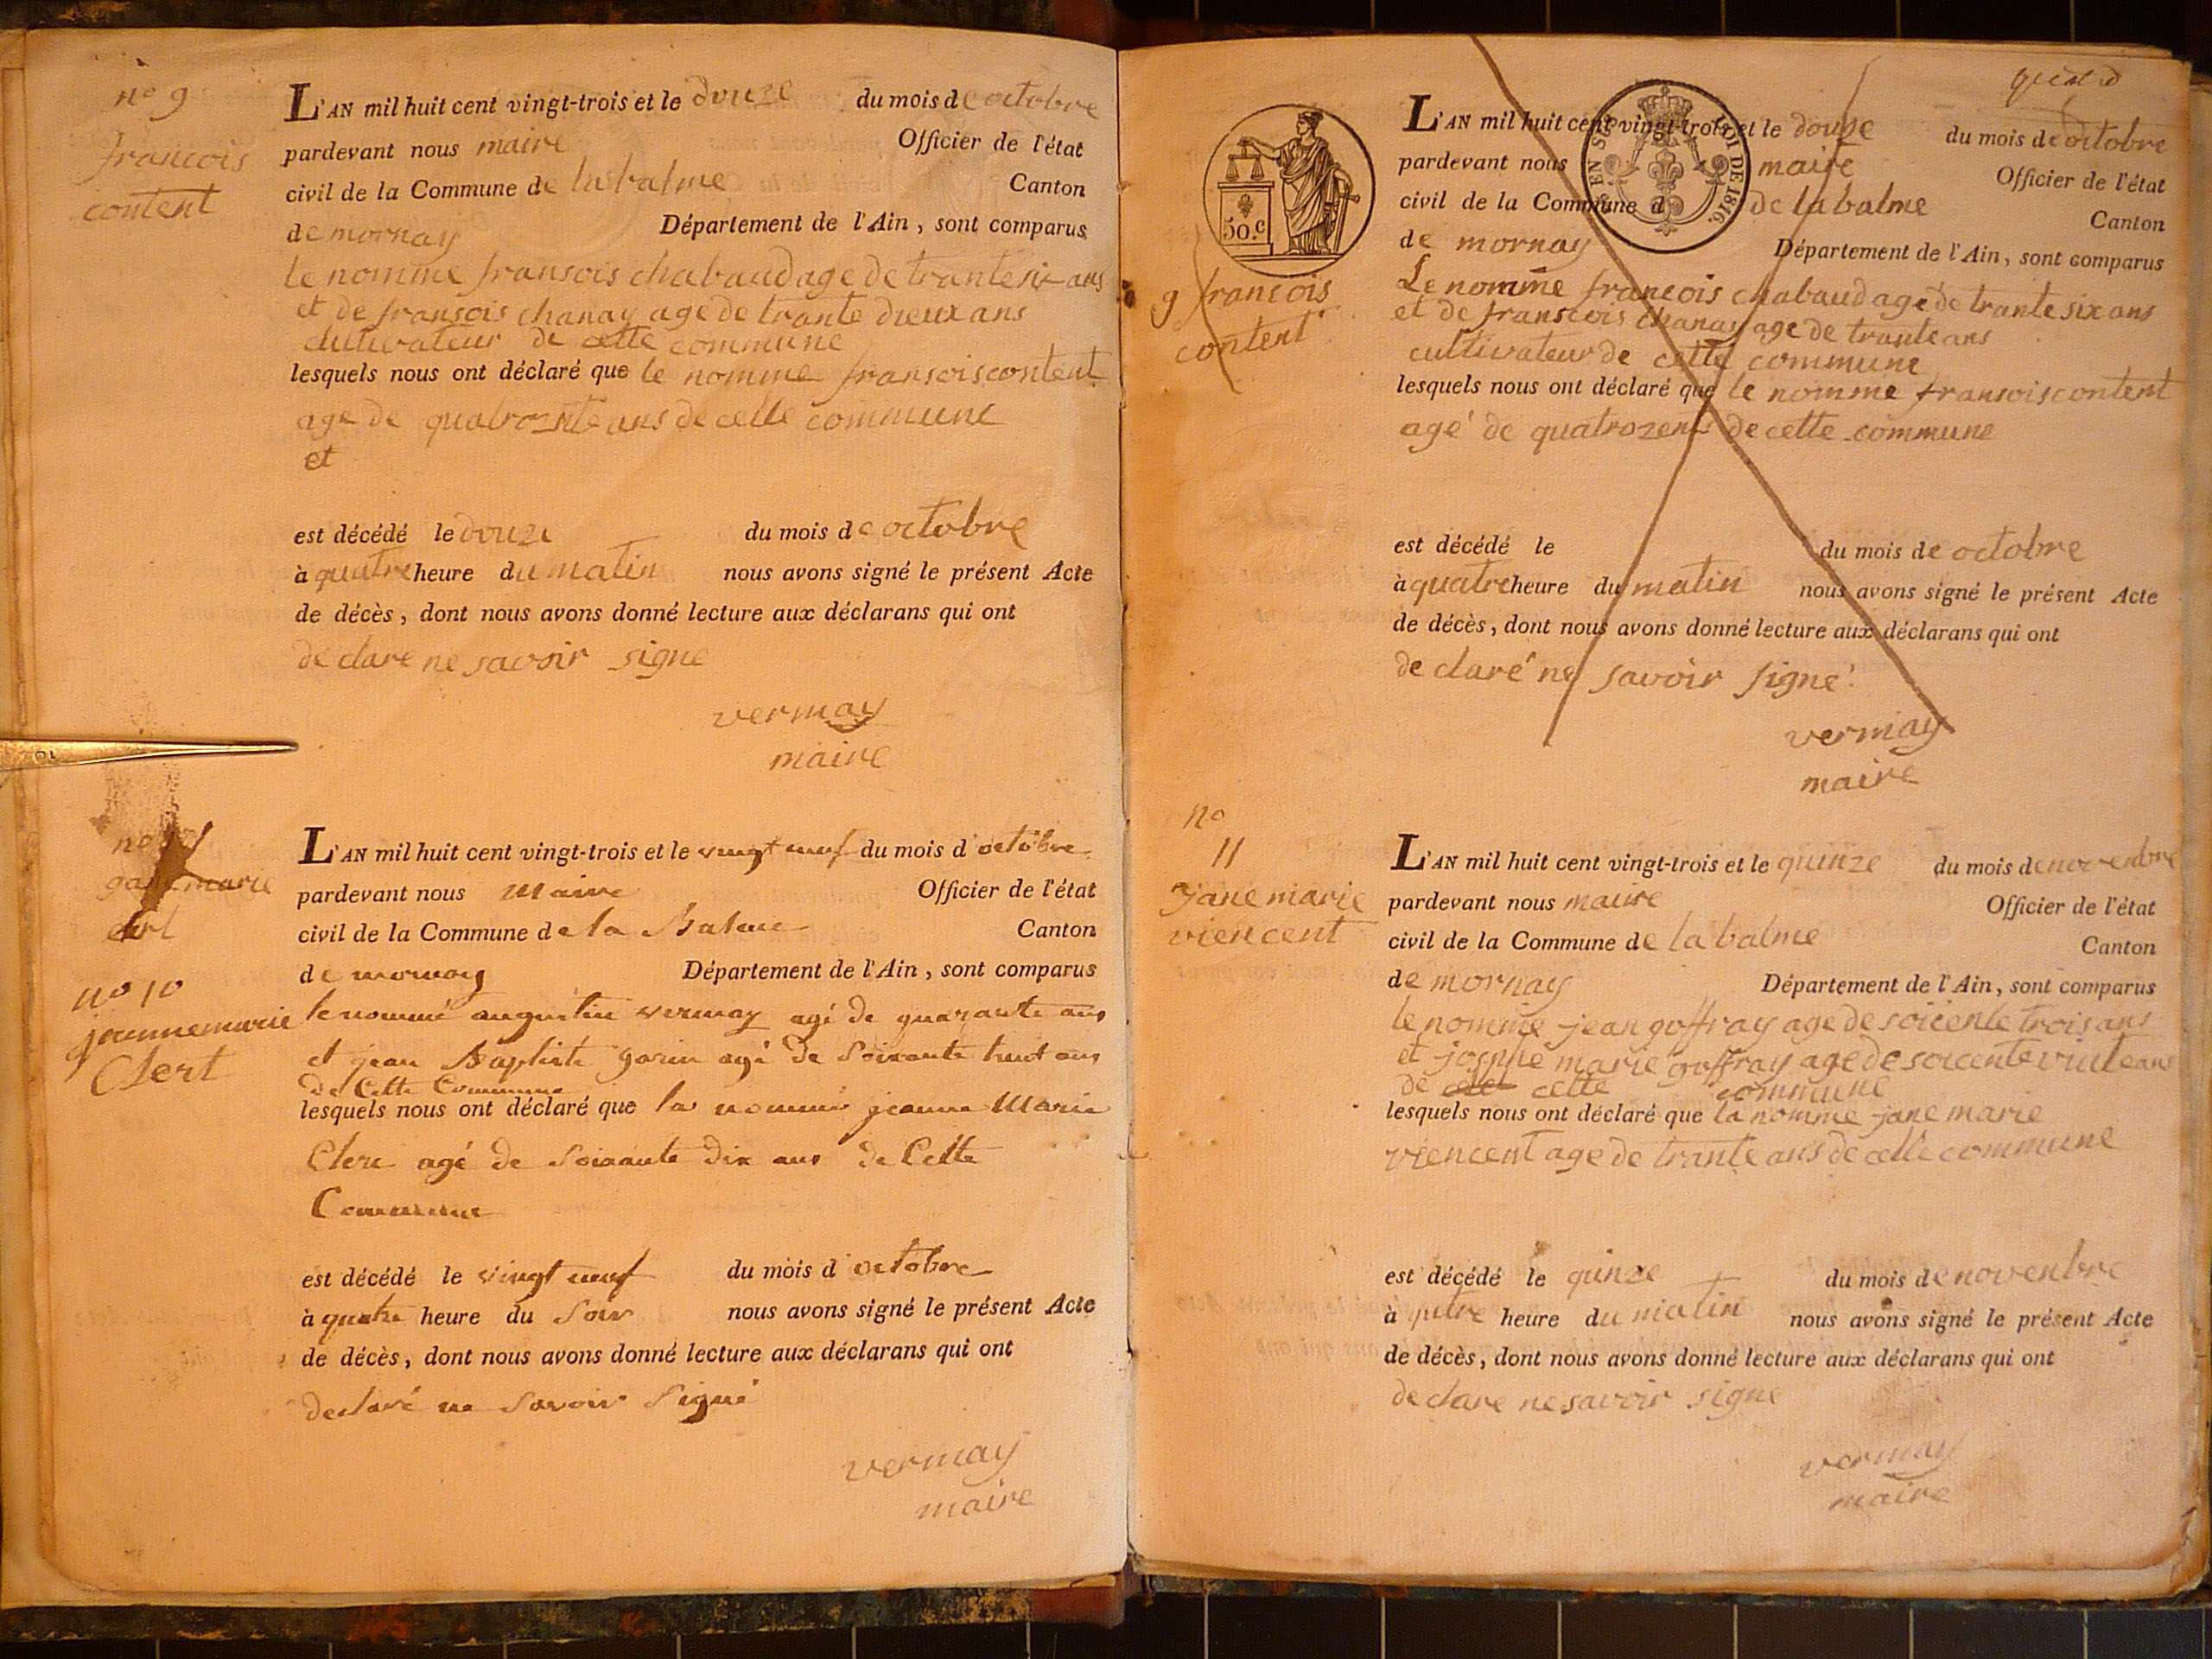 n° 9
francois
content
L'AN mil huit cent vingt-trois et le douze du mois de octobre
pardevant nous maire Officier de l'état
civil de la Commune de la balme Canton
de mornay Département de l'Ain, sont comparus
le nomme fransois chabaud age de trante six ans
et de fransois chanay age de trante dieux ans
cultivateur de cette commune
lesquels nous ont déclaré que le nomme fransois content
age de ans de cette commune
et
est décédé le douze du mois de octobre
à quatre heure du matin nous avons signé le présent Acte
de décès, dont nous avons donné lecture aux déclarans qui ont
declare ne savoir signe
vermay
maire
n°
marie
n° 10
jeannemarie
Clert
L'AN mil huit cent vingt-trois et le vingt neuf du mois d'octobre
pardevant nous Maire Officier de l'état
civil de la Commune de la Balme Canton
de mornay Département de l'Ain, sont comparus
le nommé augustin vermay agé de quarante ans
et jean Baptiste gorin agé de Soixante huit ans
de Cette Commune
lesquels nous ont déclaré que la nommé jeanne Marie
Clerc agé de Soixante dix ans de Cette
Commune
est décédé le vingt neuf du mois d'octobre
à quatre heure du Soir nous avons signé le présent Acte
de décès, dont nous avons donné lecture aux déclarans qui ont
declaré ne Savoir Signé
vermay
maire
50.c
EN SUS
LOI DE 1816.
9 francois
content
L'AN mil huit cent vingt-trois et le douze du mois de octobre
pardevant nous maire Officier de l'état
civil de la Commune d de la balme Canton
de mornay Département de l'Ain, sont comparus
Le nomme francois chabaud agé de trante six ans
et de franscois chanay age de trante ans
cultivateur de cette commune
lesquels nous ont déclaré que le nomme fransois content
agé de quatrozens de cette commune
est décédé le du mois de octobre
à quatre heure du matin nous avons signé le présent Acte
de décès, dont nous avons donné lecture aux déclarans qui ont
de claré ne savoir signé
vermay
maire
n°
11
jane marie
viencent
L'AN mil huit cent vingt-trois et le quinze du mois de novenbre
pardevant nous maire Officier de l'état
civil de la Commune de la balme Canton
de mornay Département de l'Ain, sont comparus
le nomme jean goffray age de soicente trois ans
et josphe marie goffray age de soicente vint ans
de cette commune
lesquels nous ont déclaré que la nomme jane marie
viencent age de trante ans de cette commune
est décédé le quinze du mois de novenbre
à heure du matin nous avons signé le présent Acte
de décès, dont nous avons donné lecture aux déclarans qui ont
declare ne savoir signe
vermay
maire